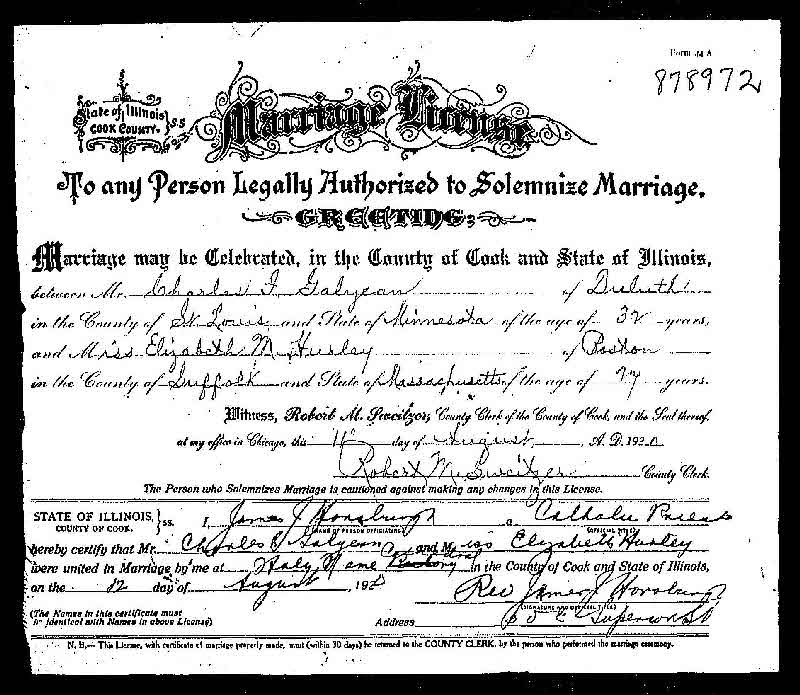 Form 44 A
878972
State of Illinois
COOK COUNTY. } SS
Marriage License
To any Person Legally Authorized to Solemnize Marriage.
GREETING:
Marriage may be Celebrated, in the County of Cook and State of Illinois,
between Mr. Charles F. Galyean of Duluth
in the County of St. Louis and State of Minnesota of the age of 32 years,
and Miss Elizabeth M. Hurley of Boston
in the County of Suffolk and State of Massachusetts of the age of years.
Witness, Robert M. Sweitzer, County Clerk of the County of Cook, and the Seal thereof,
at my office in Chicago, this day of August A. D. 1920
Robert M. Sweitzer County Clerk.
The Person who Solemnizes Marriage is cautioned against making any changes in this License.
STATE OF ILLINOIS, } ss. I, James J Horsburgh a Catholic Priest
COUNTY OF COOK. (NAME OF PERSON OFFICIATING) (OFFICIAL TITLE)
hereby certify that Mr. Charles Galyean and Miss Elizabeth Hurley
were united in Marriage by me at Holy Name in the County of Cook and State of Illinois,
on the 12 day of August 192
Rev James J Horsburgh
(The Names in this certificate must (SIGNATURE AND OFFICIAL TITLE)
be identical with Names in above License) Address E Superior St
N. B.— This License, with certificate of marriage properly made, must (within 30 days) be returned to the COUNTY CLERK, by the person who performed the marriage ceremony.